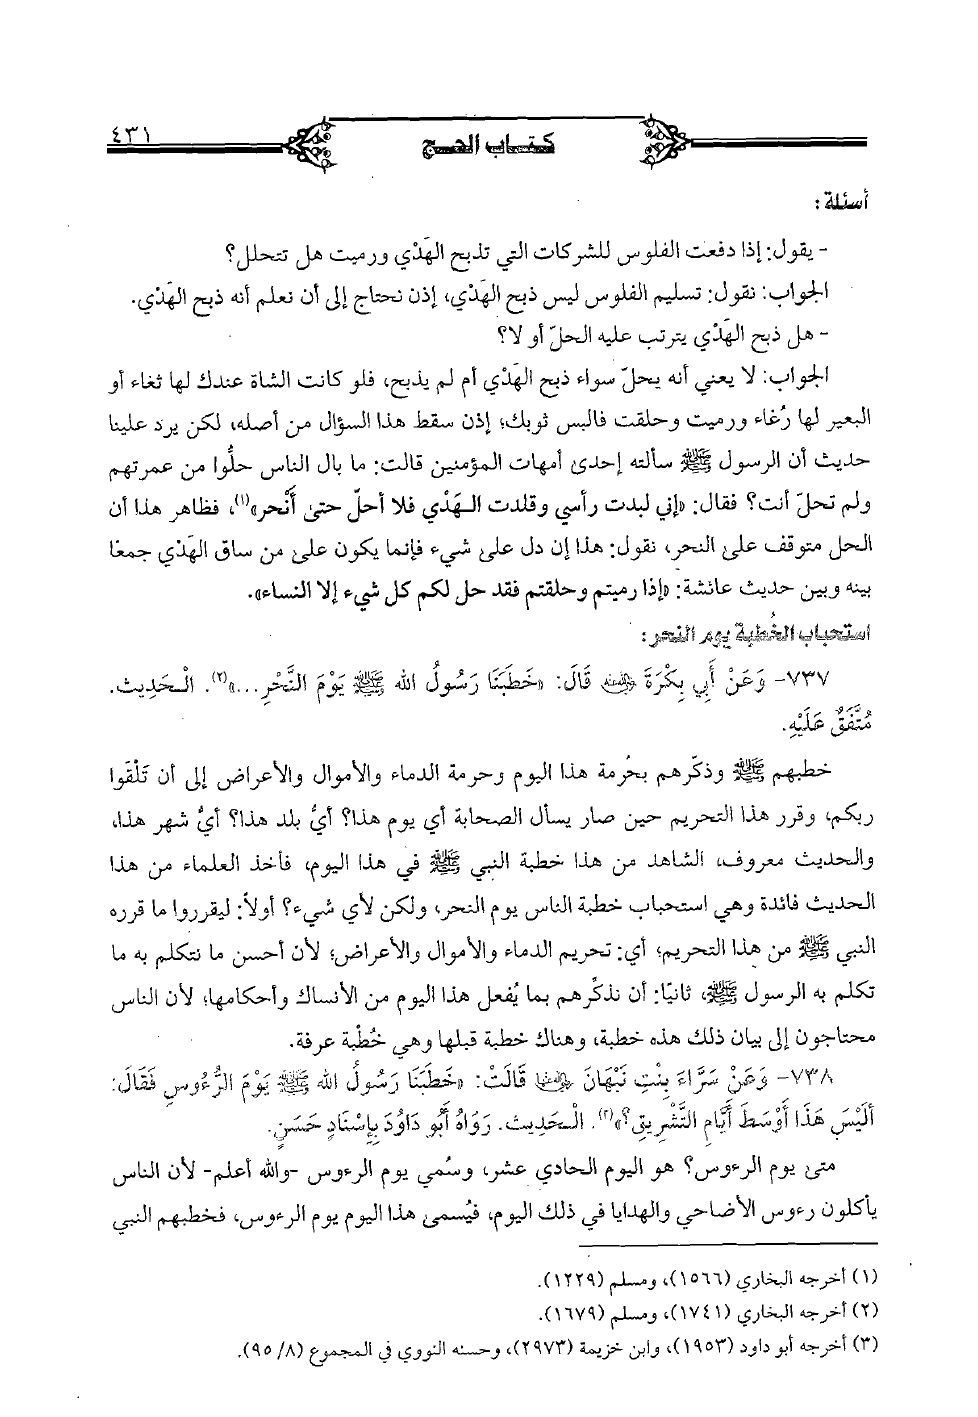 ٤٣١
كتاب الحج
أسئلة:
- يقول: إذا دفعت الفلوس للشركات التي تذبح الهَدْي ورميت هل تتحلل؟
الجواب: نقول: تسليم الفلوس ليس ذبح الهَدْي، إذن نحتاج إلى أن نعلم أنه ذبح الهَدْي.
- هل ذبح الهَدْي يترتب عليه الحلّ أو لا؟
الجواب: لا يعني أنه يحلّ سواء ذبح الهَدْي أم لم يذبح، فلو كانت الشاة عندك لها ثغاء أو
البعير لها رُغاء ورميت وحلقت فالبس ثوبك؛ إذن سقط هذا السؤال من أصله، لكن يرد علينا
حديث أن الرسول ﷺ سألته إحدى أمهات المؤمنين قالت: ما بال الناس حلُّوا من عمرتهم
ولم تحلّ أنت؟ فقال: «إني لبدت رأسي وقلدت الهَدْي فلا أحلّ حتى أَنْحر»(١)، فظاهر هذا أن
الحل متوقف على النحر، نقول: هذا إن دل على شيء فإنما يكون على من ساق الهَدْي جمعًا
بينه وبين حديث عائشة: «إذا رميتم وحلقتم فقد حل لكم كل شيء إلا النساء».
استحباب الخُطبة يوم النحر:
٧٣٧- وَعَنْ أَبِي بَكْرَةَ رضي الله عنه قَالَ: «خَطَبَنَا رَسُولُ الله ﷺ يَوْمَ النَّحْرِ...»(٢). الْحَدِيثَ.
مُتَّفَقٌ عَلَيْهِ.
خطبهم ﷺ وذكّرهم بحُرمة هذا اليوم وحرمة الدماء والأموال والأعراض إلى أن تَلْقَوا
ربكم، وقرر هذا التحريم حين صار يسأل الصحابة أي يوم هذا؟ أيُّ بلد هذا؟ أيُّ شهر هذا،
والحديث معروف، الشاهد من هذا خطبة النبي ﷺ في هذا اليوم، فأخذ العلماء من هذا
الحديث فائدة وهي استحباب خطبة الناس يوم النحر، ولكن لأي شيء؟ أولاً: ليقرروا ما قرره
النبي ﷺ من هذا التحريم؛ أي: تحريم الدماء والأموال والأعراض؛ لأن أحسن ما نتكلم به ما
تكلم به الرسول ﷺ، ثانيًا: أن نذكّرهم بما يُفعل هذا اليوم من الأنساك وأحكامها؛ لأن الناس
محتاجون إلى بيان ذلك هذه خطبة، وهناك خطبة قبلها وهي خُطْبة عرفة.
٧٣٨- وَعَنْ سَرَّاءَ بِنْتِ نَبْهَانَ رضي الله عنها قَالَتْ: «خَطَبَنَا رَسُولُ الله ﷺ يَوْمَ الرُّءُوسِ فَقَالَ:
أَلَيْسَ هَذَا أَوْسَطَ أَيَّامِ التَّشْرِيقِ؟»(٣). الْحَدِيثَ. رَوَاهُ أَبُو دَاوُدَ بِإِسْنَادٍ حَسَنٍ.
متى يوم الرءوس؟ هو اليوم الحادي عشر، وسُمي يوم الرءوس -والله أعلم- لأن الناس
يأكلون رءوس الأضاحي والهدايا في ذلك اليوم، فيُسمى هذا اليوم يوم الرءوس، فخطبهم النبي
(١) أخرجه البخاري (١٥٦٦)، ومسلم (١٢٢٩).
(٢) أخرجه البخاري (١٧٤١)، ومسلم (١٦٧٩).
(٣) أخرجه أبو داود (١٩٥٣)، وابن خزيمة (٢٩٧٣)، وحسنه النووي في المجموع (٨/ ٩٥).